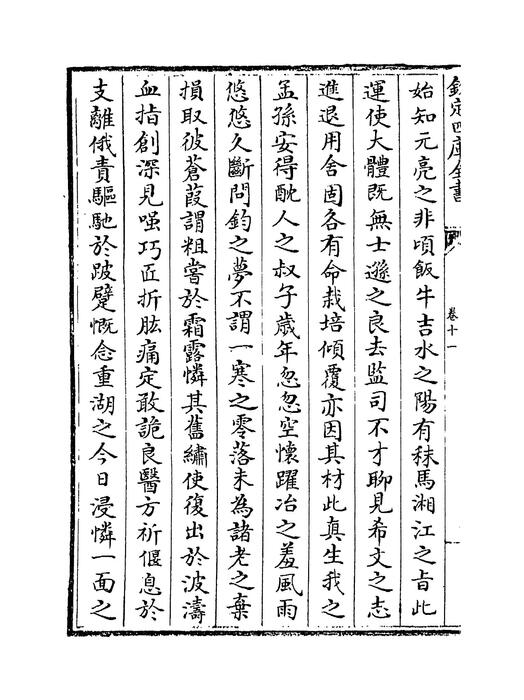 欽定四庫全書
卷十一
始知元亮之非頃飯牛吉水之陽有秣馬湘江之㫖此
運使大體既無士遜之良去監司不才聊見希文之志
進退用舍固各有命栽培傾覆亦因其材此真生我之
孟孫安得酖人之叔子歳年忽忽空懐躍冶之羞風雨
悠悠久斷問鈞之夢不謂一寒之零落未為諸老之棄
損取彼蒼葭謂粗嘗於霜露憐其舊繡使復出於波濤
血指創深見嗤巧匠折肱痛定敢詭良醫方祈偃息於
支離俄責驅馳於跛躄慨念重湖之今日浸憐一面之